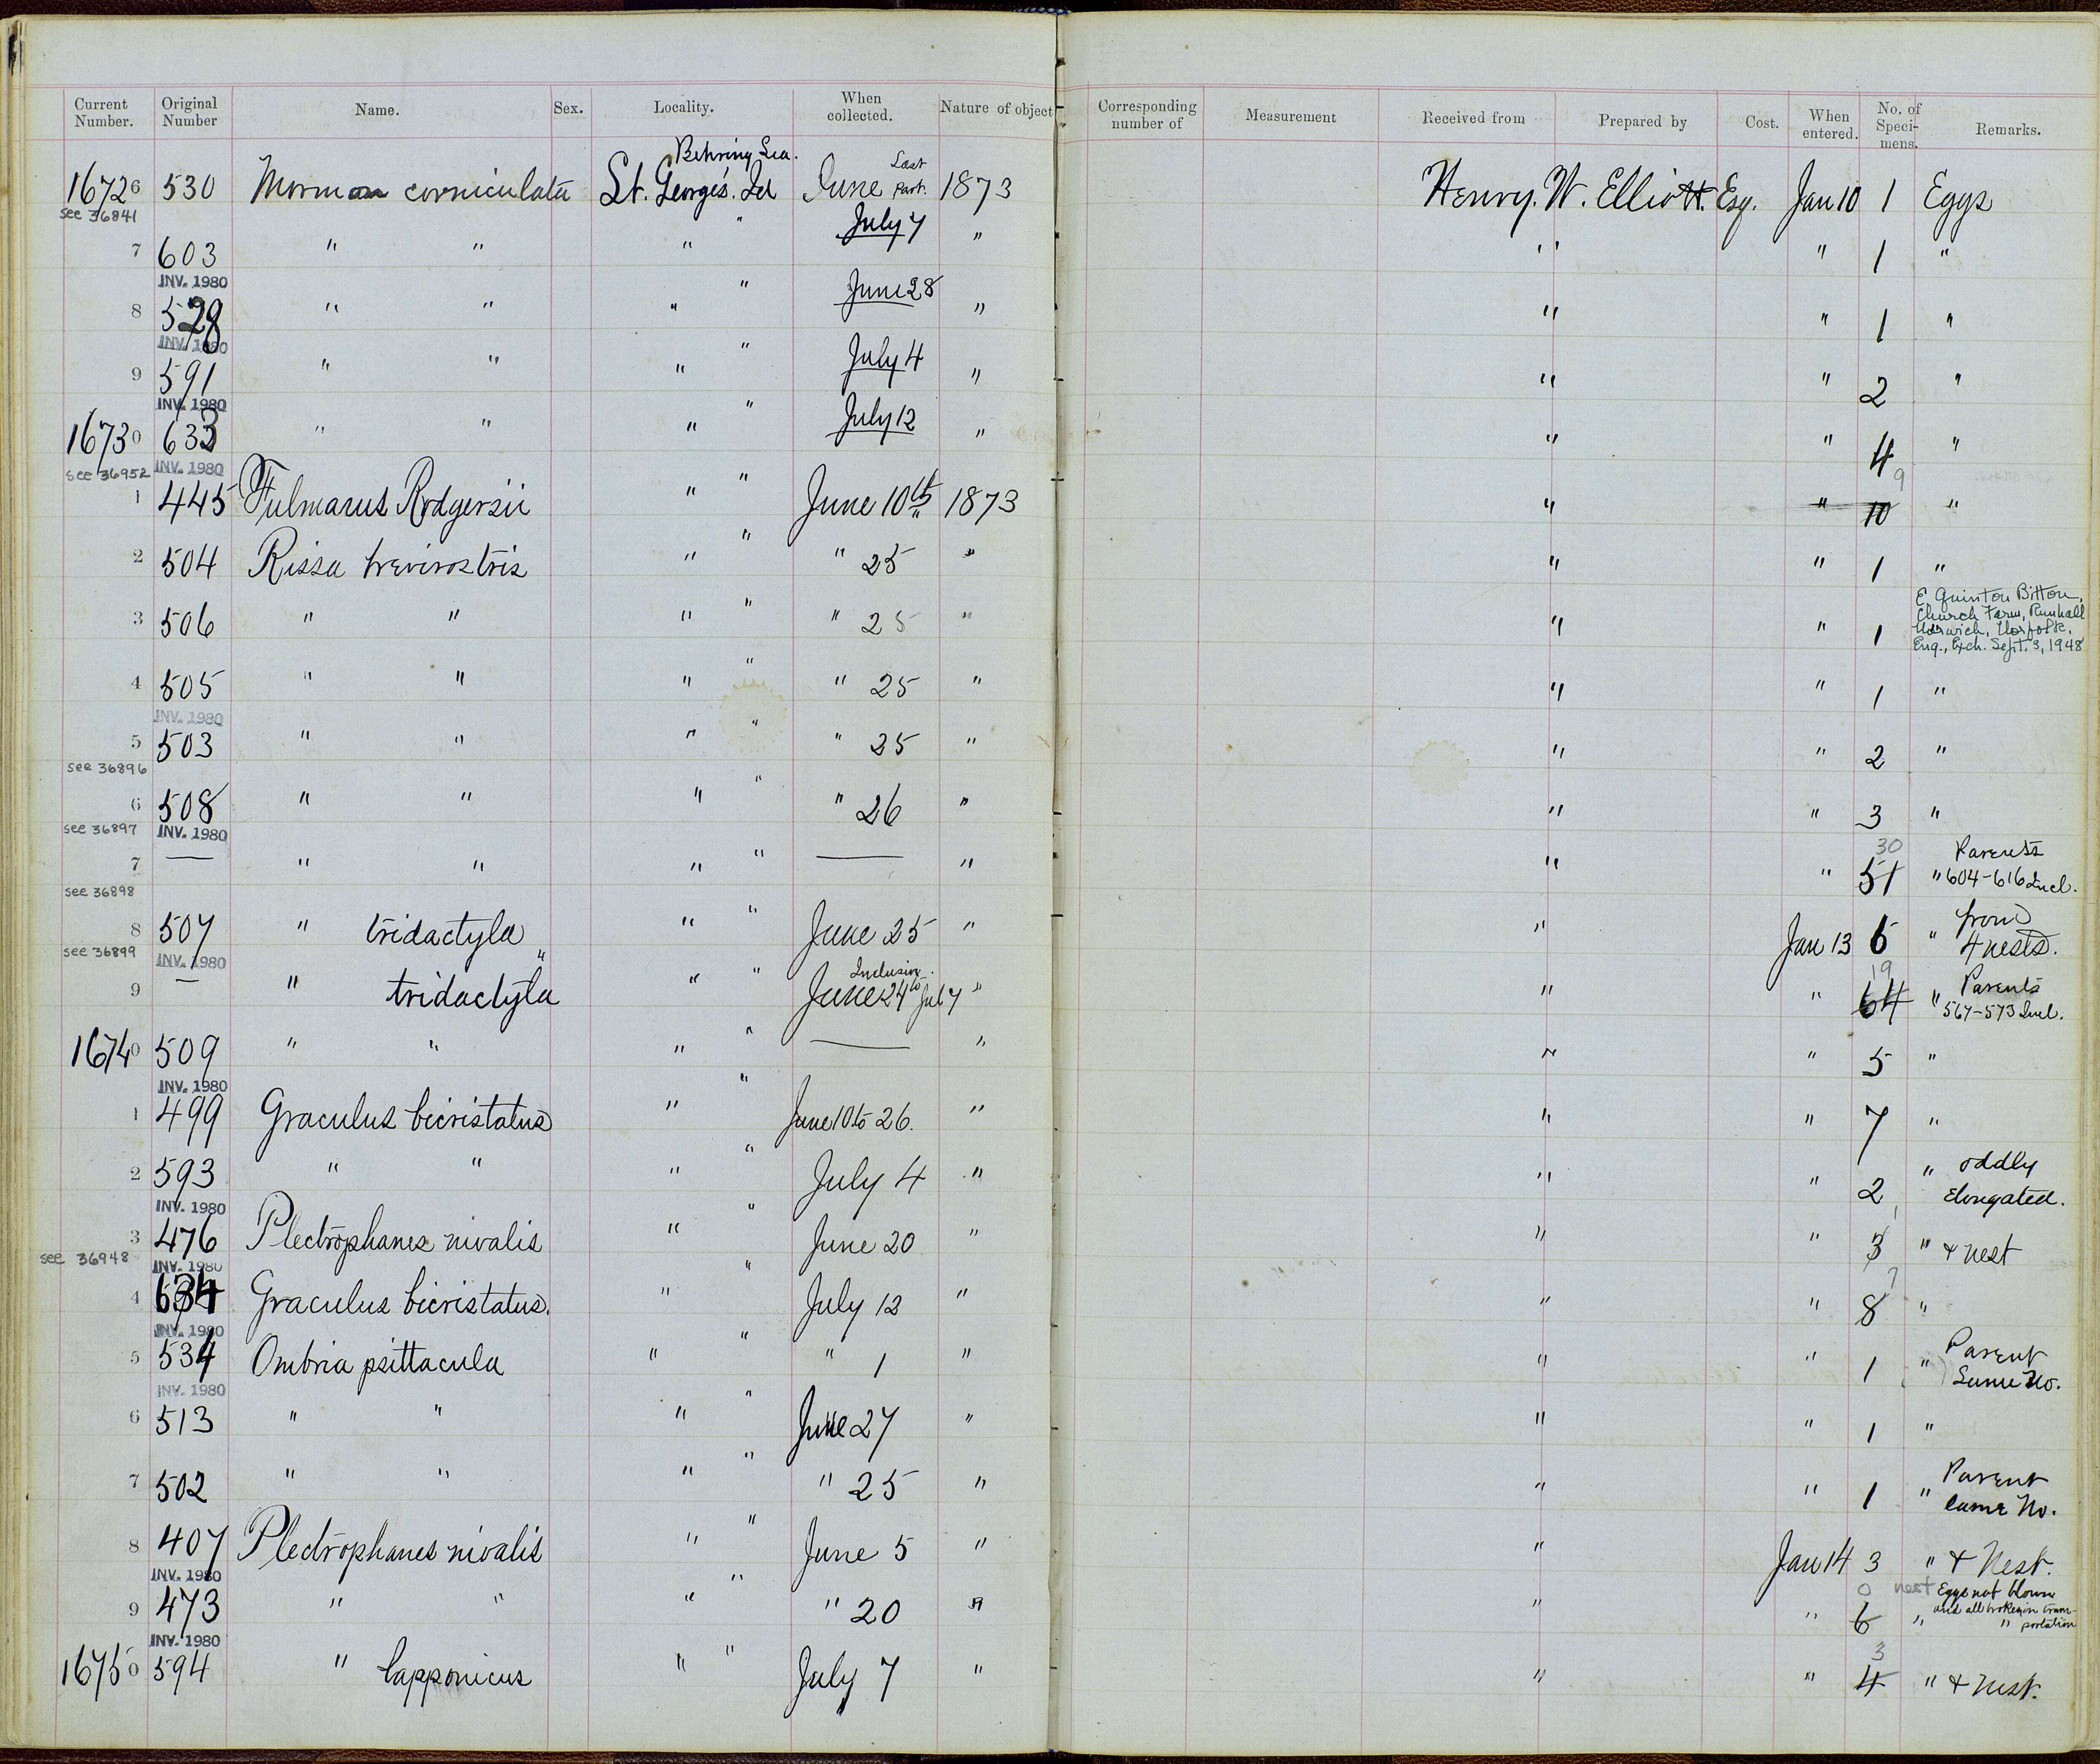 Current Number. Original Number Name. Sex. Locality. When collected. Nature of object Corresponding number of Measurement Received from Prepared by Cost. When entered. No. of Speci-mens. Remarks.
Behring Sea. Last
16726 530 Mormon corniculata St. George's. Isl June Part. 1873 Henry. W. Elliott. Esq. Jan 10 1 Eggs
see 36841
7 603 " " " " July 7 " " " 1 "
INV. 1980
8 529 " " " " June 28 " " " 1 "
INV. 1980
9 591 " " " " July 4 " " " 2 "
INV. 1980
16730 633 " " " " July 12 " " " 4 "
see 36952 INV. 1980
9
1 445 Fulmarus Rodgersii " " June 10th 1873 " " 10 "
2 504 Rissa brevirostris " " " 25 " " " 1 "
E. Quinton Bitton,
Church Farm, Runhall
3 506 " " " " " 25 " " " 1 Norwich, Norfolk,
Eng., Exch. Sept. 3, 1948
4 505 " " " " " 25 " " " 1 "
INV. 1980
5 503 " " " " " 25 " " " 2 "
see 36896
6 508 " " " " " 26 " " " 3 "
see 36897 INV. 1980
30 Parents
7 — " " " " — " " " 51 " 604-616 Incl.
see 36898
from
8 507 " tridactyla " " June 25 " " Jan 13 6 " 4 nests.
see 36899 INV. 1980
Inclusive. 19 Parents
9 — " " tridactyla " " June 24 to Jul 7 " " " 64 " 567-573 Incl.
16740 509 " " " " — " " " 5 "
INV. 1980
1 499 Graculus bicristatus " " June 10 to 26. " " " 7 "
oddly
2 593 " " " " July 4 " " " 2 " Elongated.
INV. 1980
3 476 Plectrophanes nivalis " " June 20 " " " 3 " & nest
see 36948 INV. 1980
7
4 634 Graculus bicristatus. " " July 12 " " " 8 "
INV. 1980
Parent
5 534 Ombria psittacula " " " 1 " " " 1 " Same No.
INV. 1980
6 513 " " " " June 27 " " " 1 "
Parent
7 502 " " " " " 25 " " " 1 " Same No.
8 407 Plectrophanes nivalis " " June 5 " " Jan 14 3 " & Nest.
INV. 1980
0 nest Eggs not blown
9 473 " " " " " 20 " " " 6 " and all broken in trans-
" portation
INV. 1980
3
16750 594 " lapponicus " " July 7 " " " 4 " & Nest.